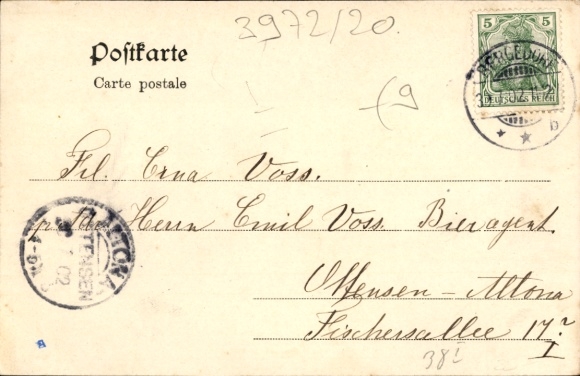 3972/20.
Postkarte
Carte postale
5 5
DEUTSCHES REICH
BERGEDORF
b
(9
Frl. Erna Voss.
Herrn Emil Voss. Bieragent.
ALTONA
OTTENSEN
1.02
Ottensen-Altona
Fischersallee 17?
I
38